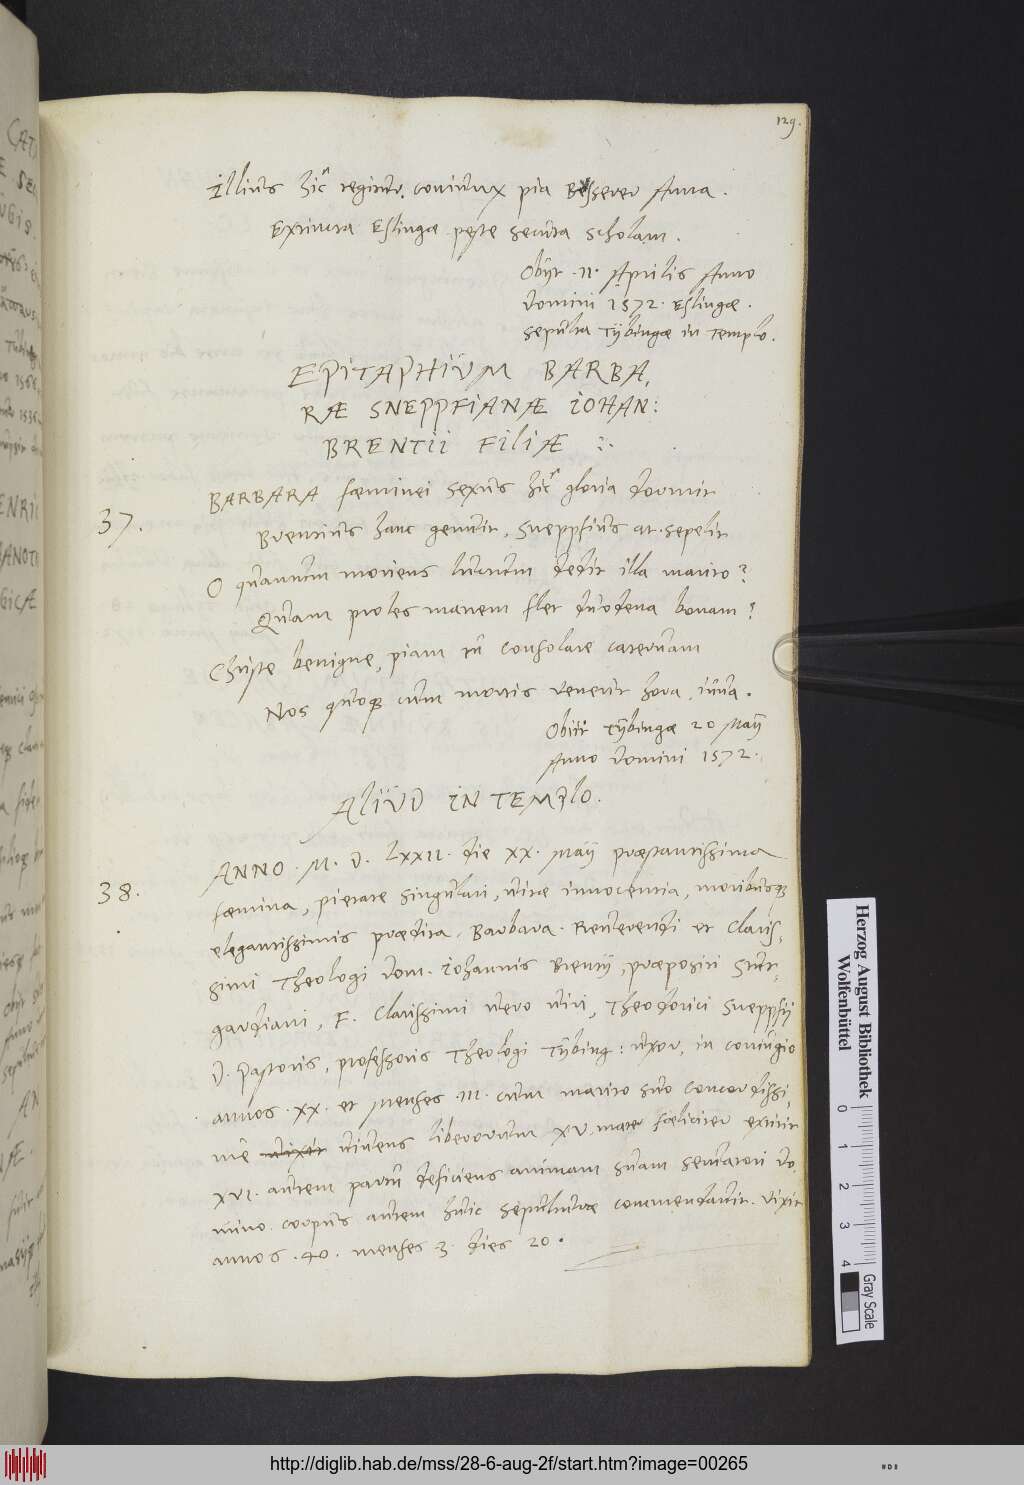 129.
Illius hîc tegitur coniunx pia Besserer Anna.
Extincta Eslingæ peste secuta scholam.
Obijt .11. Aprilis Anno
domini 1572. Eslingæ.
sepulta Tÿbingæ in templo.
EPITAPHIUM BARBA,
RÆ SNEPPFIANÆ IOHAN:
BRENTII FILIÆ :.
37.
BARBARA fœminei sexus hîc gloria dormit
Brentius hanc genuit, Sneppfius at sepelit
O quantum moriens luctum dedit illa marito?
Quam proles matrem flet duodena bonam?
Christe benigne, piam tu consolare cateruam
Nos quoq; cum mortis venerit hora, iuua.
Obiit Tÿbingæ 20 Maÿ
Anno domini 1572.
ALIUD IN TEMPLO.
38.
ANNO. M. D. LXXII. die XX. Maÿ præstantissima
fœmina, pietate singulari, uitæ innocentia, moribusq;
elegantissimis prædita, Barbara. Reuerendi et Claris,
simi Theologi dom. Iohannis Brentÿ, præpositi Stut,
gardiani, F. Clarissimi uero uiri, Theodorici Sneppfÿ
D. Pastoris, professoris Theologi Tÿbing: uxor, in coniugio
annos .XX. et menses .III. cum marito suo concordissi,
me uixit uiuens liberorum XV. mater fœliciter extitit
XVI. autem partu deficiens animam suam seruatori do,
mino. corpus autem huic sepulturæ commendauit. Vixit
annos .40. menses 3. dies 20.
Herzog August Bibliothek
Wolfenbüttel
0 1 2 3 4
Gray Scale
http://diglib.hab.de/mss/28-6-aug-2f/start.htm?image=00265